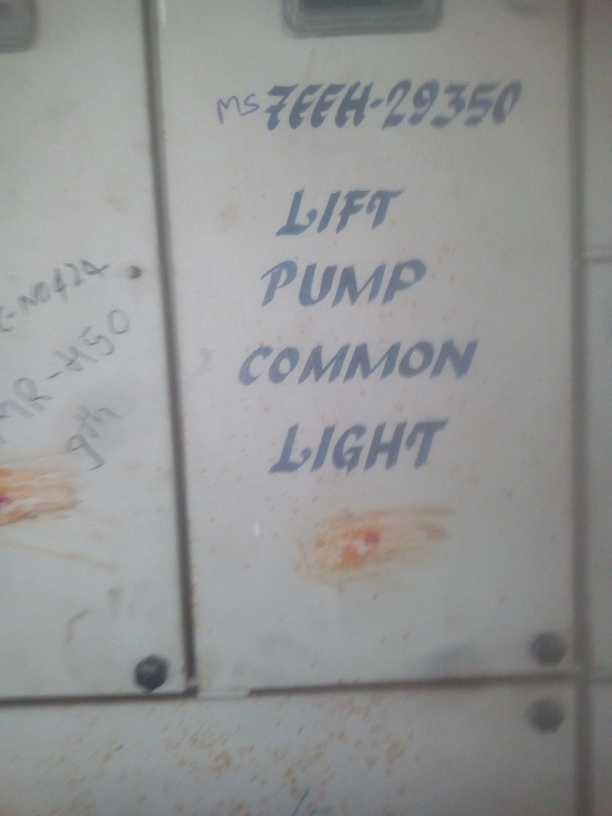 MS 7EEH-29350
LIFT
PUMP
COMMON
LIGHT
C-NO424
MR-H50
9th